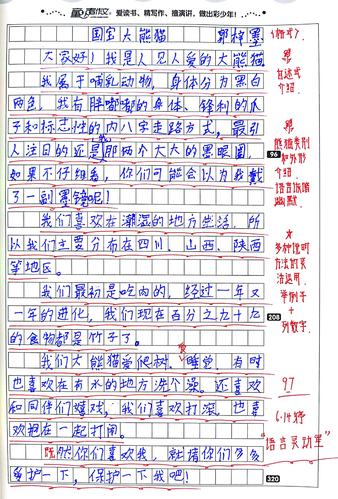 爱读书、精写作、擅演讲，做出彩少年！
国宝大熊猫 郭梓墨
大家好！我是人见人爱的大熊猫
我属于哺乳动物，身体分为黑白
两色，我有胖嘟嘟的身体、锋利的爪
子和标志性的内八字走路方式，最引
人注目的还是那两个大大的黑眼圈，
如果不仔细看，你们可能会以为我戴
了一副墨镜呢！
我们喜欢在潮湿的地方生活，所
以我们主要分布在四川、山西、陕西
等地区。
我们最初是吃肉的，经过一年又
一年的进化，我们现在百分之九十九
的食物都是竹子了。
我们大熊猫爱爬树、爱睡觉，有时
也喜欢在有水的地方洗个澡。还喜欢
和同伴们嬉戏，我们喜欢打滚，也喜
欢抱在一起打闹。
既然你们喜欢我，就请你们多多
爱护一下，保护一下我吧！
96
208
320
自述式
介绍.
熊猫类别
和外形
介绍.
语言诙谐
幽默.
多种说明
方法的灵
活运用.
举例子
列数字.
97
"语言灵动星"